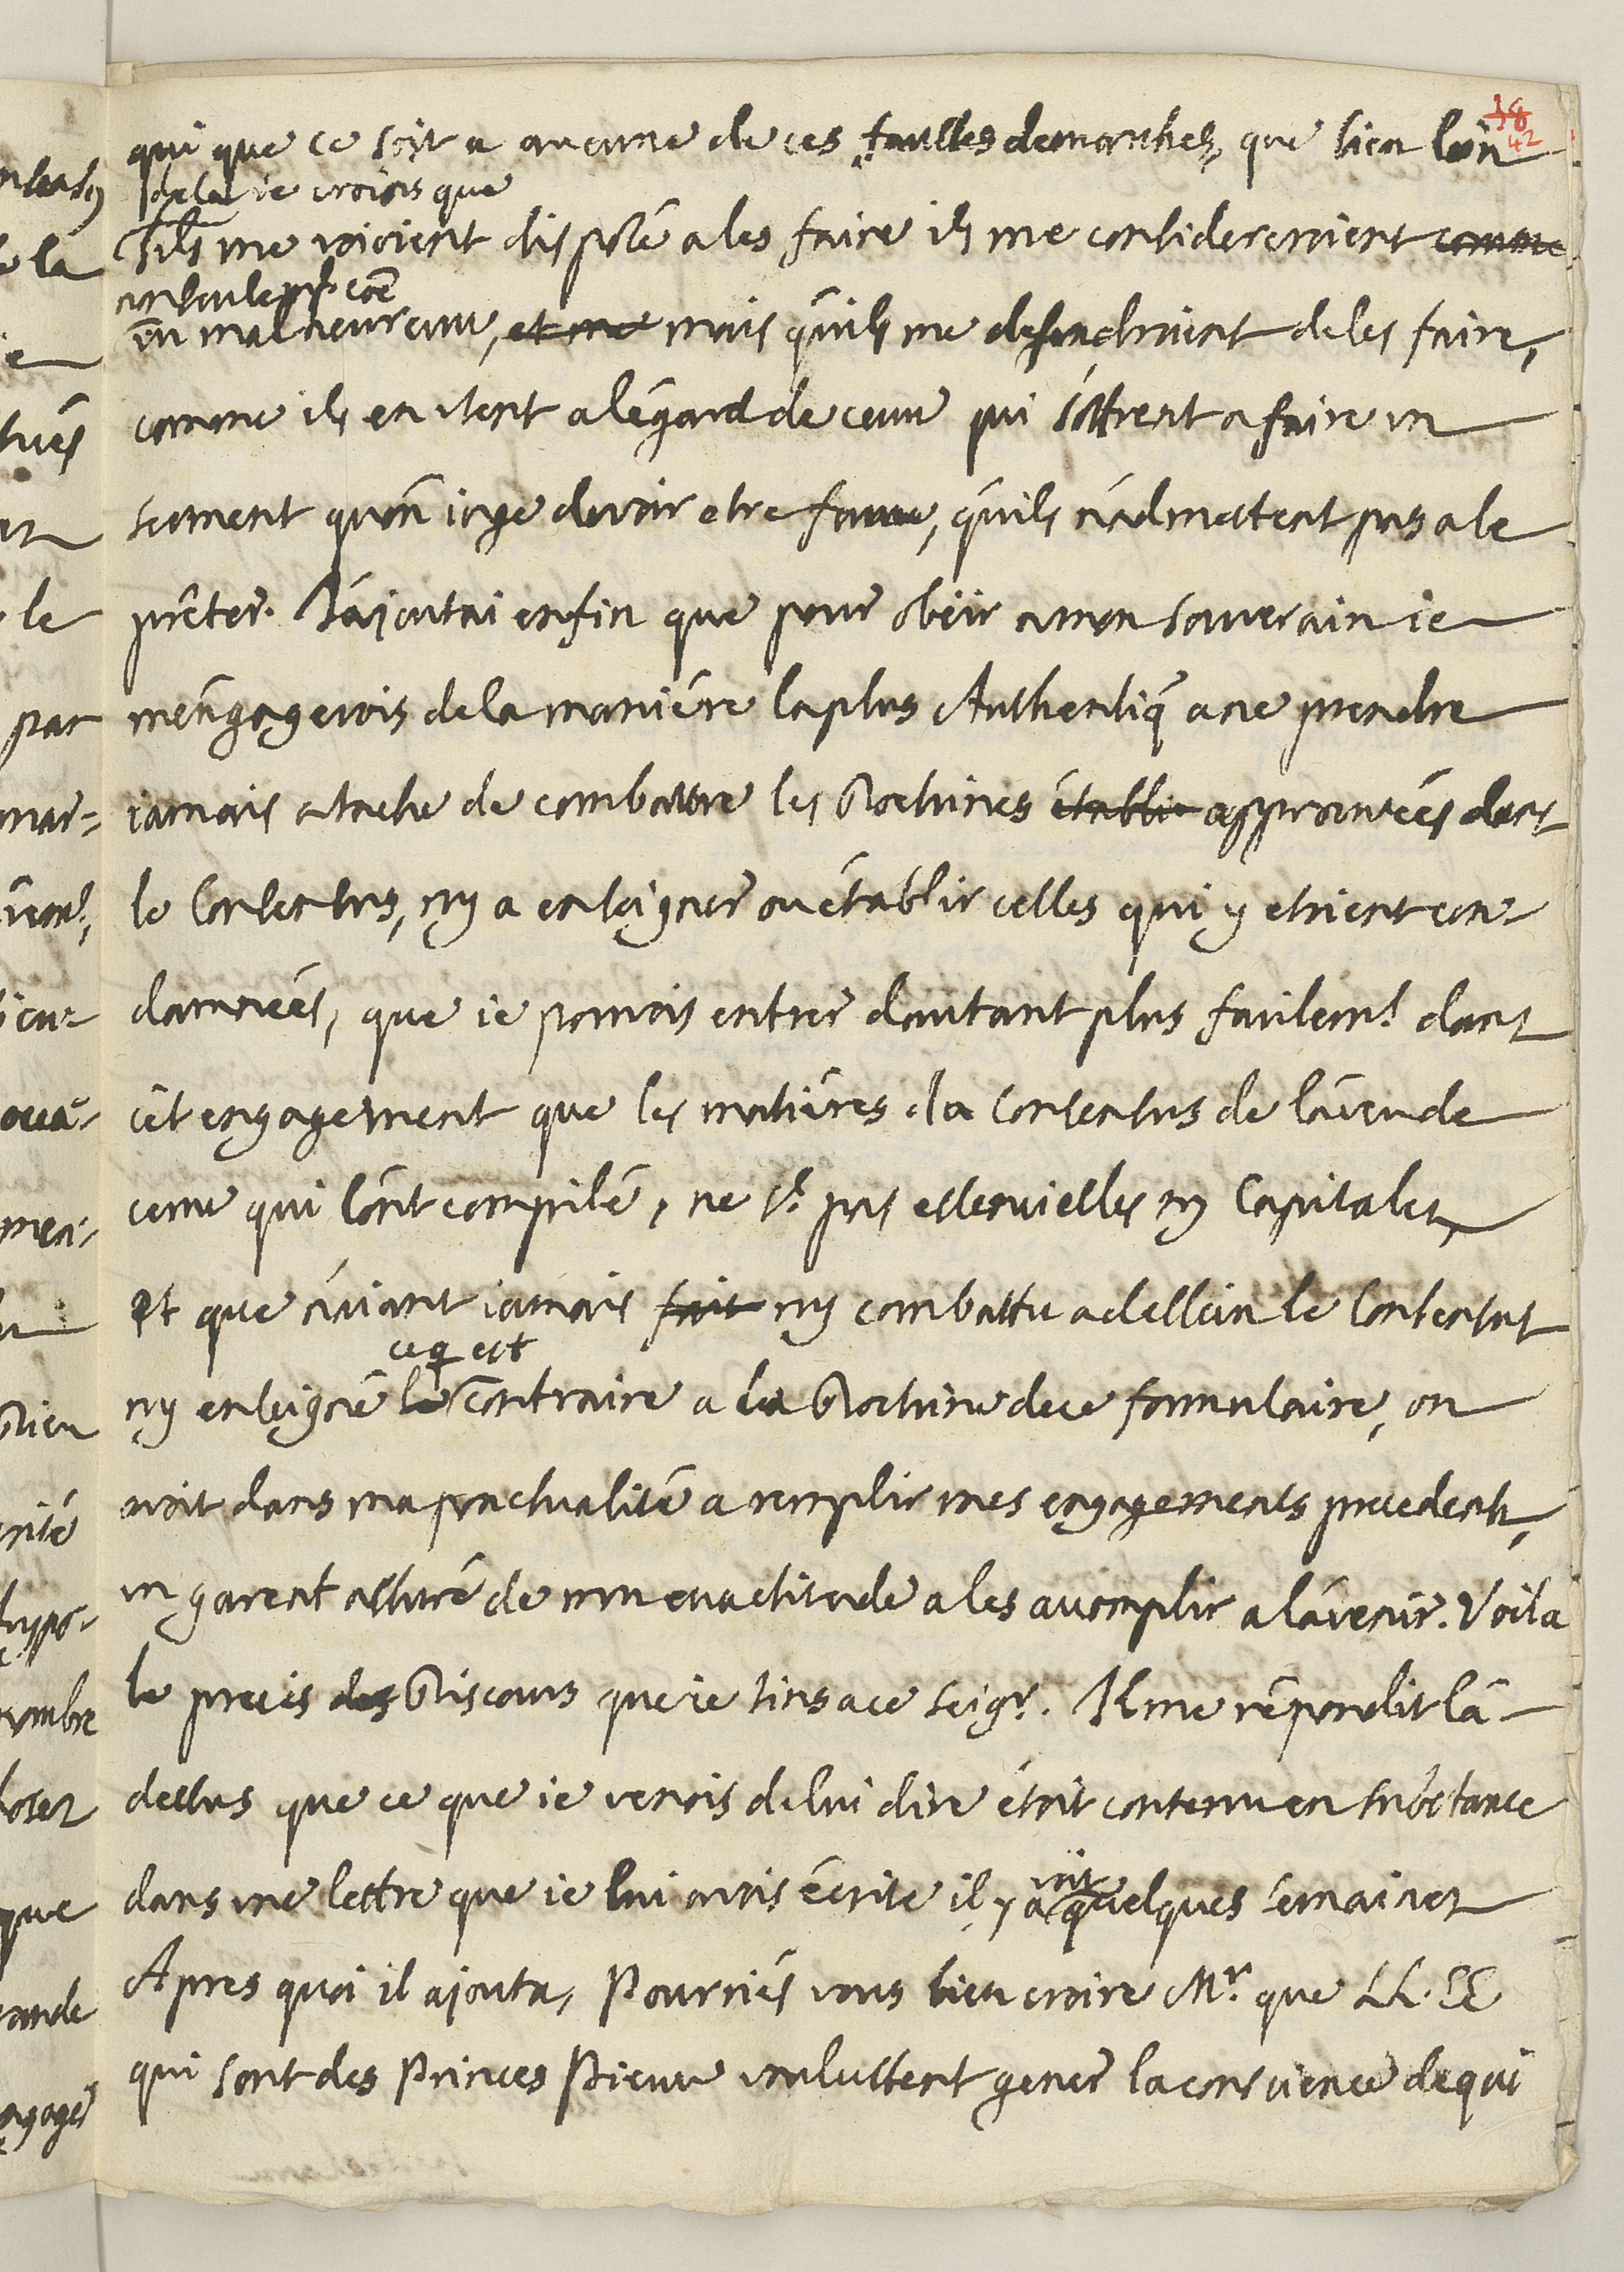 38
42
qui que ce soit a aucune de ces fausses demarches, que bien loin
dela ie croiois que
S'ils me voioient disposé a les faire ils me considereroient comme
non seulemt. coe
un malheureux, et me mais qu'ils me defendroient de les faire,
comme ils en usent a l'égard de ceux qui s'offrent a faire un
serment qu'on iuge devoir etre faux, qu'ils n'admettent pas a le
prêter. J'ajoutai enfin que pour obéir a mon Souverain ie
m'engagerois de la maniére la plus Authentiq' a ne prendre
iamais a tache de combattre les Doctrines établie approuvées dans
le Consensus, ny a enseigner ou établir celles qui y etoient con-
damnées, que ie pouvois entrer dautant plus facilemt. dans
cet engagement que les matiéres du Consensus de l'aveu de
ceux qui l'ont compilé, ne st. pas essencielles ny Capitales,
Et que n'aiant iamais fait ny combattu a dessein le Consensus
ce q est
ny enseigné le contraire a la Doctrine de ce formulaire, on
avoit dans ma ponctualité a remplir mes engagements precedents,
un garent assuré de mon exactitude a les accomplir a l'avenir. Voila
le precis des Discours que ie tins a ce Seigr. Il me répondit là-
dessus que ce que ie venois de lui dire étoit contenu en substance
voit
dans une lettre que ie lui avois écrite il y a quelques semaines
Apres quoi il ajouta, Pourriés vous bien croire Mr. que LL.EE
qui sont des Princes Pieux voulussent gener la conscience de qui